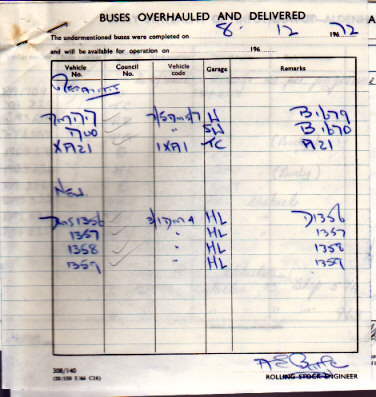 BUSES OVERHAULED AND DELIVERED
The undermentioned buses were completed on 8. 12 1972
and will be available for operation on 196
Vehicle No. Council No. Vehicle code Garage Remarks
✓ W B.1679
700 ✓ " SW B.1670
XA21 ✓ 1XA1 TC A21
NEW
DMS1356 ✓ HL D1356
1357 ✓ " HL 1357
1358 ✓ " HL 1358
1359 ✓ " HL 1359
308/140
ROLLING STOCK ENGINEER